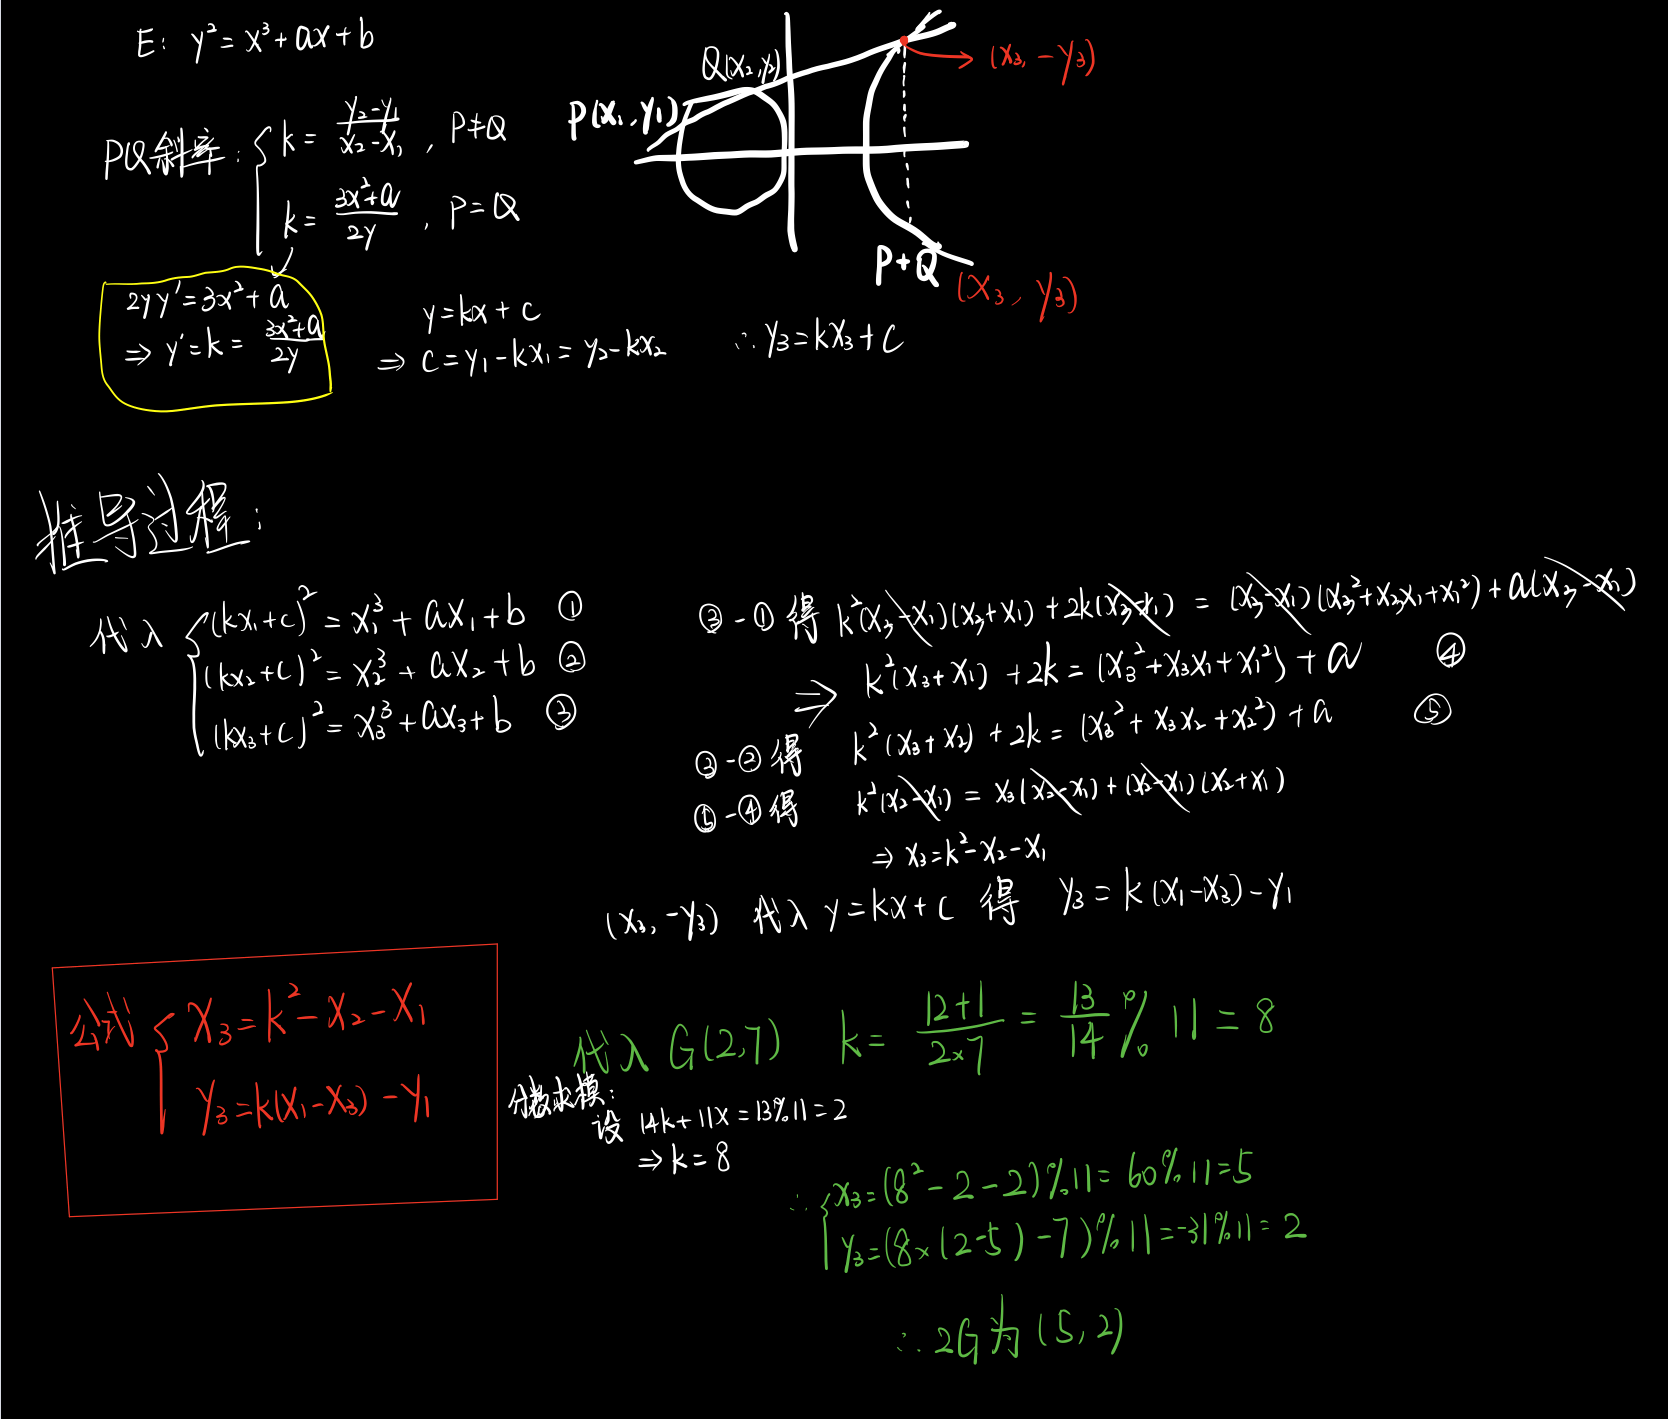 E: y² = x³ + ax + b
PQ斜率: { k = (y₂-y₁)/(x₂-x₁), P≠Q
k = (3x²+a)/(2y), P=Q
2yy' = 3x² + a
⇒ y' = k = (3x²+a)/(2y)
y = kx + c
⇒ c = y₁ - kx₁ = y₂ - kx₂ ∴ y₃ = kx₃ + c
P(x₁, y₁)
Q(x₂, y₂)
(x₃, -y₃)
P+Q
(x₃, y₃)
推导过程:
代入 { (kx₁+c)² = x₁³ + ax₁ + b ①
(kx₂+c)² = x₂³ + ax₂ + b ②
(kx₃+c)² = x₃³ + ax₃ + b ③
③-①得 k²(x₃-x₁)(x₃+x₁) + 2k(x₃-x₁) = (x₃-x₁)(x₃²+x₃x₁+x₁²) + a(x₃-x₁)
⇒ k²(x₃+x₁) + 2k = (x₃²+x₃x₁+x₁²) + a ④
③-②得 k²(x₃+x₂) + 2k = (x₃²+x₃x₂+x₂²) + a ⑤
⑤-④得 k²(x₂-x₁) = x₃(x₂-x₁) + (x₂-x₁)(x₂+x₁)
⇒ x₃ = k² - x₂ - x₁
(x₃, -y₃) 代入 y = kx + c 得 y₃ = k(x₁-x₃) - y₁
公式 { x₃ = k² - x₂ - x₁
y₃ = k(x₁-x₃) - y₁
代入 G(2,7) k = (12+1)/(2×7) = 13/14 % 11 = 8
分数求模:
设 14k + 11x = 13%11 = 2
⇒ k = 8
∴ { x₃ = (8²-2-2)%11 = 60%11 = 5
y₃ = (8×(2-5)-7)%11 = -31%11 = 2
∴ 2G为 (5,2)